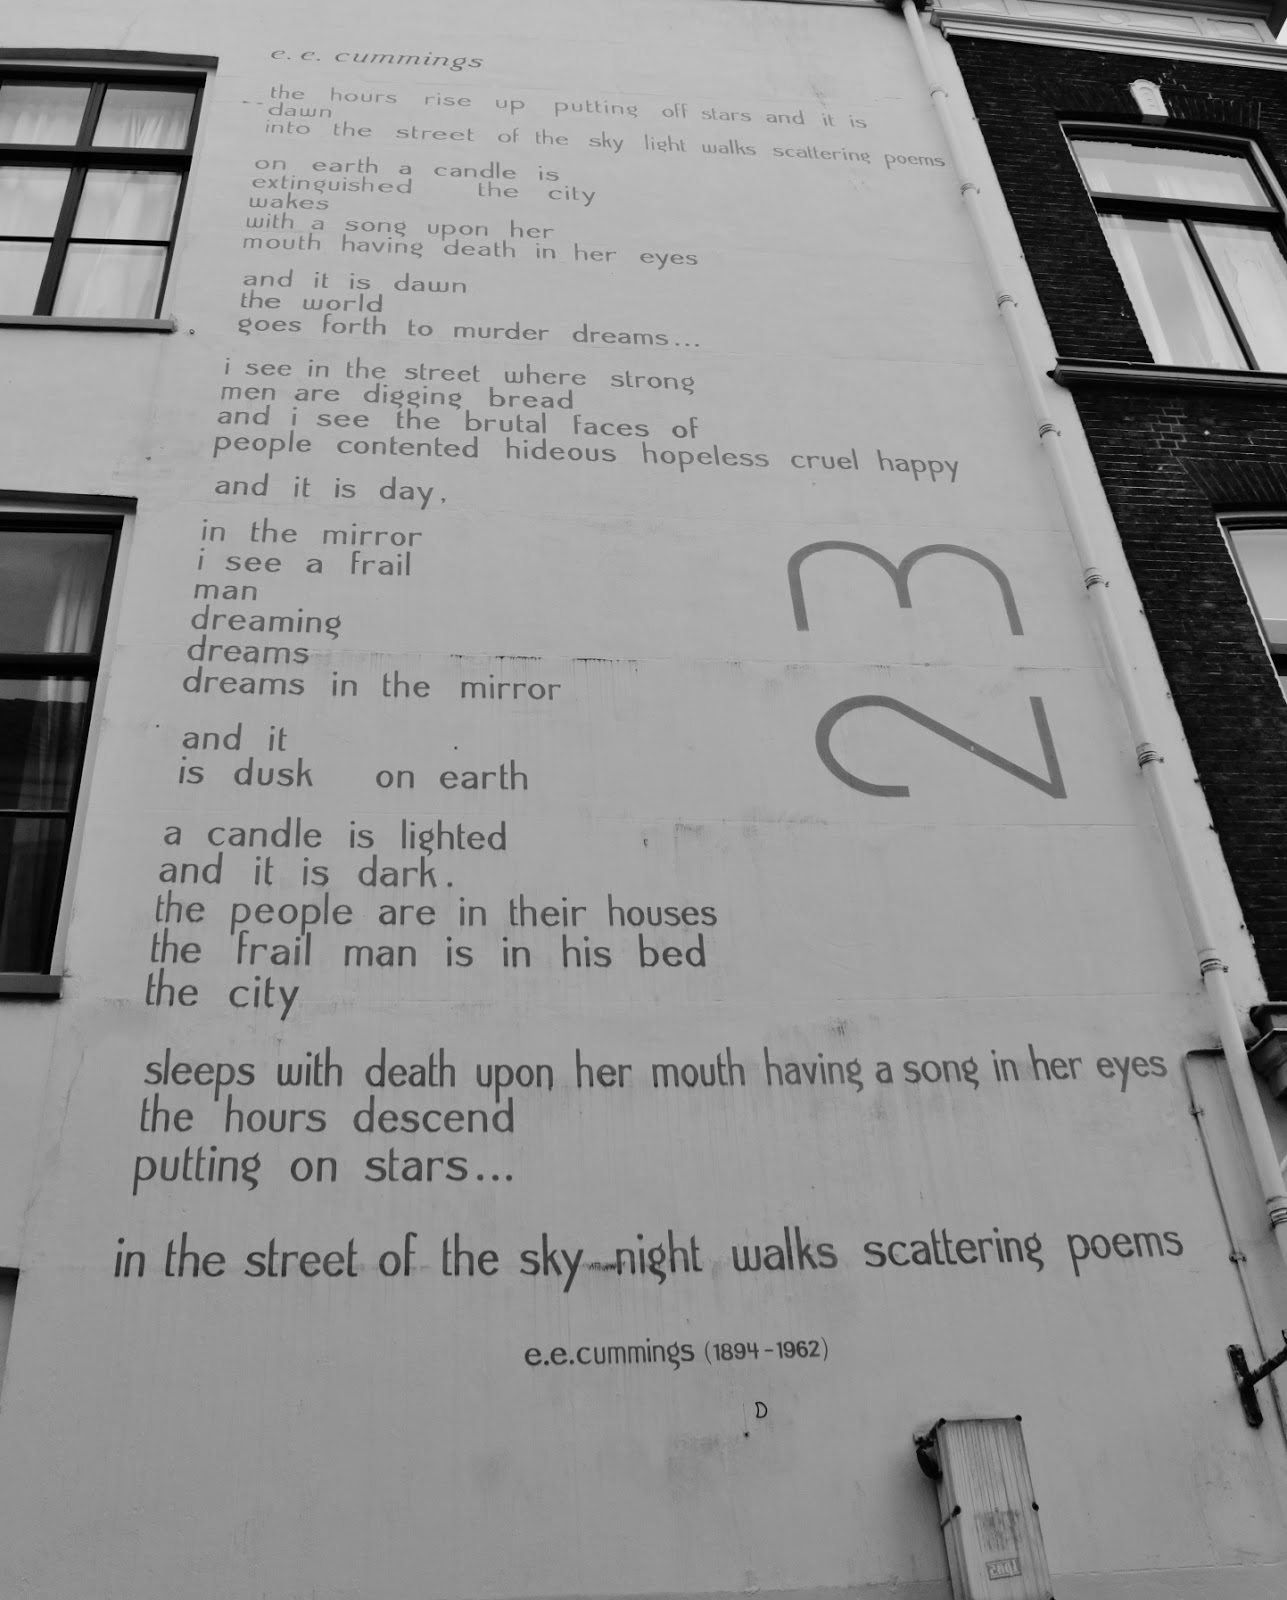 e. e. cummings
the hours rise up putting off stars and it is
dawn
into the street of the sky light walks scattering poems
on earth a candle is
extinguished the city
wakes
with a song upon her
mouth having death in her eyes
and it is dawn
the world
goes forth to murder dreams...
i see in the street where strong
men are digging bread
and i see the brutal faces of
people contented hideous hopeless cruel happy
and it is day,
in the mirror
i see a frail
man
dreaming
dreams
dreams in the mirror
and it
is dusk on earth
a candle is lighted
and it is dark.
the people are in their houses
the frail man is in his bed
the city
sleeps with death upon her mouth having a song in her eyes
the hours descend
putting on stars...
in the street of the sky night walks scattering poems
e.e.cummings (1894-1962)
D
23